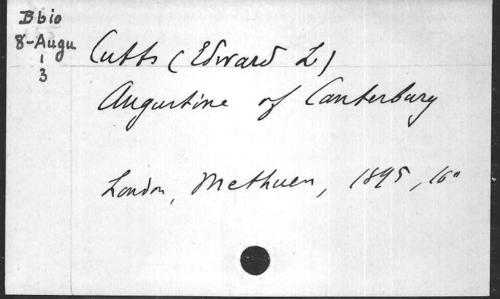 Bbio
8-Augu
1
3
Cutts (Edward L)
Augustine of Canterbury
London, Methuen, 1895, 16°